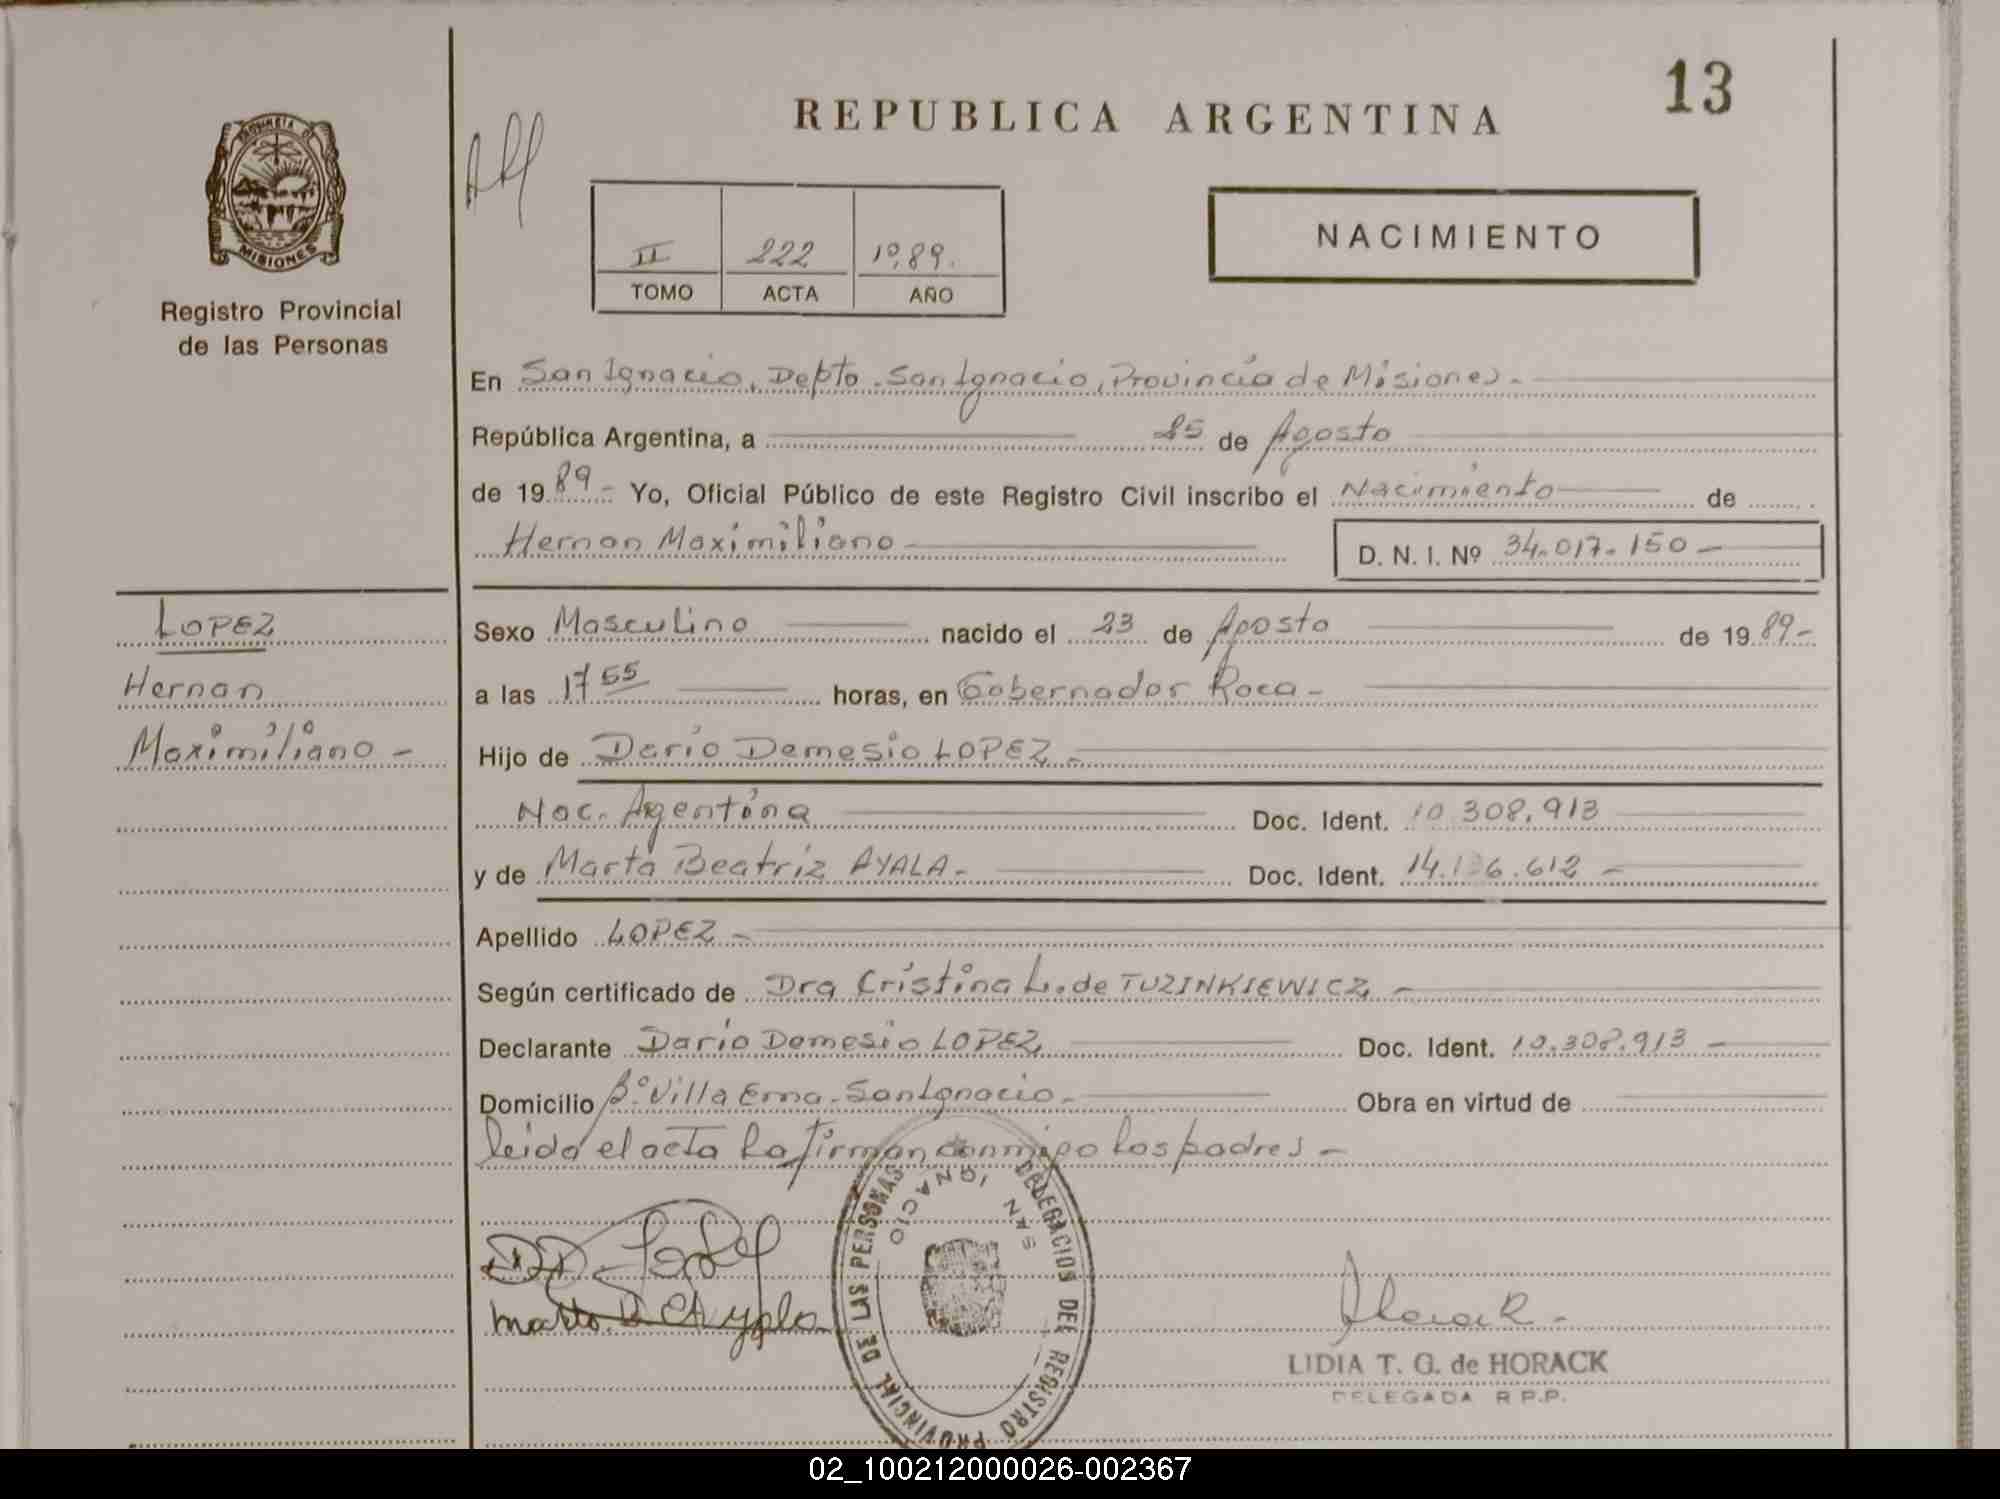 13
REPUBLICA ARGENTINA
PROVINCIA DE
MISIONES
Registro Provincial
de las Personas
II 222 1989.
TOMO ACTA AÑO
NACIMIENTO
En San Ignacio, Depto. San Ignacio, Provincia de Misiones.-
República Argentina, a 25 de Agosto
de 1989- Yo, Oficial Público de este Registro Civil inscribo el Nacimiento de
Hernan Maximiliano D. N. I. Nº 34.017.150-
LOPEZ
Hernan
Maximiliano-
Sexo Masculino nacido el 23 de Agosto de 1989-
a las 17 55 horas, en Gobernador Roca-
Hijo de Dario Demesio LOPEZ-
Nac. Agentina Doc. Ident. 10.308.913
y de Marta Beatriz AYALA- Doc. Ident. 14.136.612-
Apellido LOPEZ-
Según certificado de Dra Cristina L. de TUZINKIEWICZ-
Declarante Dario Demesio LOPEZ Doc. Ident. 10.308.913-
Domicilio Bº Villa Erna- San Ignacio- Obra en virtud de
leida el acta la firman conmigo los padres-
DELEGACION DEL REGISTRO PROVINCIAL DE LAS PERSONAS
SAN IGNACIO
Marta B Ayala
LIDIA T. G. de HORACK
DELEGADA R.P.P.
02_100212000026-002367